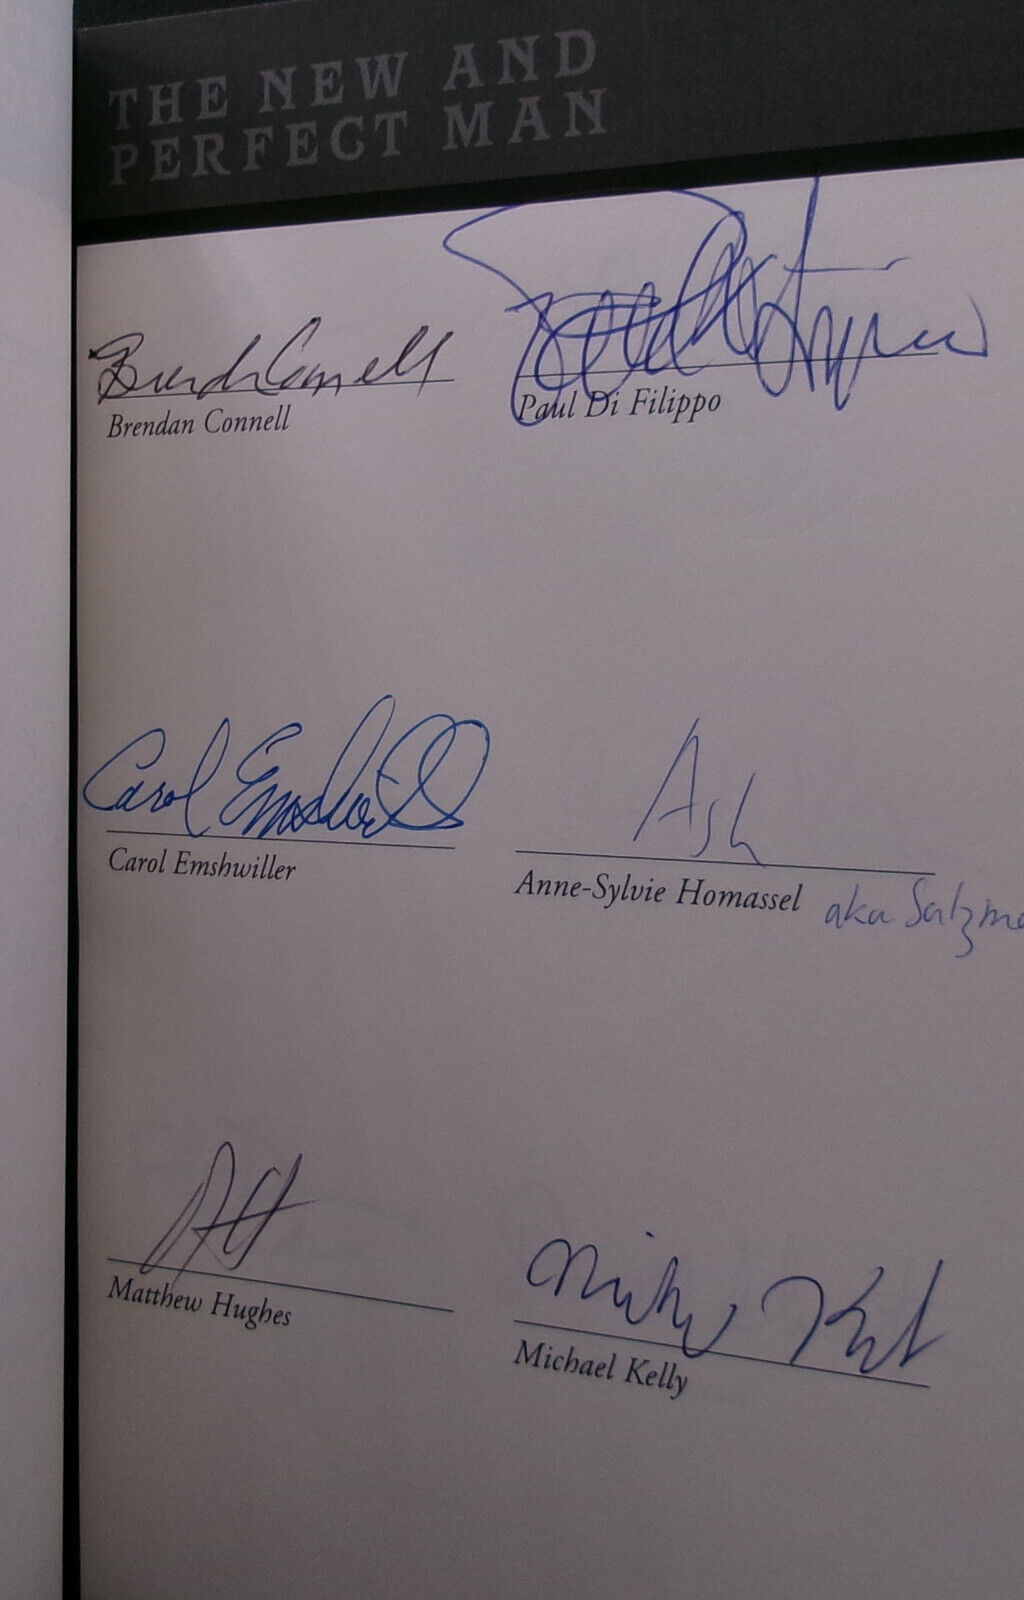 THE NEW AND
PERFECT MAN
Brendan Connell
Brendan Connell
Paul Di Filippo
Paul Di Filippo
Carol Emshwiller
Carol Emshwiller
Ash
Anne-Sylvie Homassel aka
Matthew Hughes
Michael Kelly